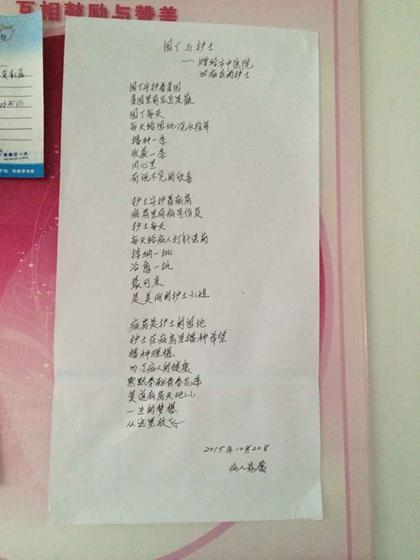 互相鼓励与赞美
园丁与护士
——赠给市中医院
四病区的护士
园丁守护着菜园
菜园里有瓜果菜蔬
园丁每天
每天给园地浇水拔草
播种一季
收获一季
内心里
有说不完的欣喜
护士守护着病房
病房里有病号伤员
护士每天
每天给病人打针送药
接纳一批
治愈一批
最可亲
是美丽的护士小姐
病房是护士的园地
护士在病房里播种希望
播种理想
为了病人的健康
默默奉献青春花季
莫道病房天地小
一生的梦想
从这里放飞
2015年10月20日
病人